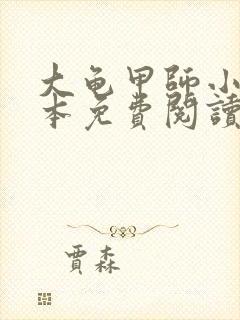 大龟甲師小
本免費閱讀
賈森